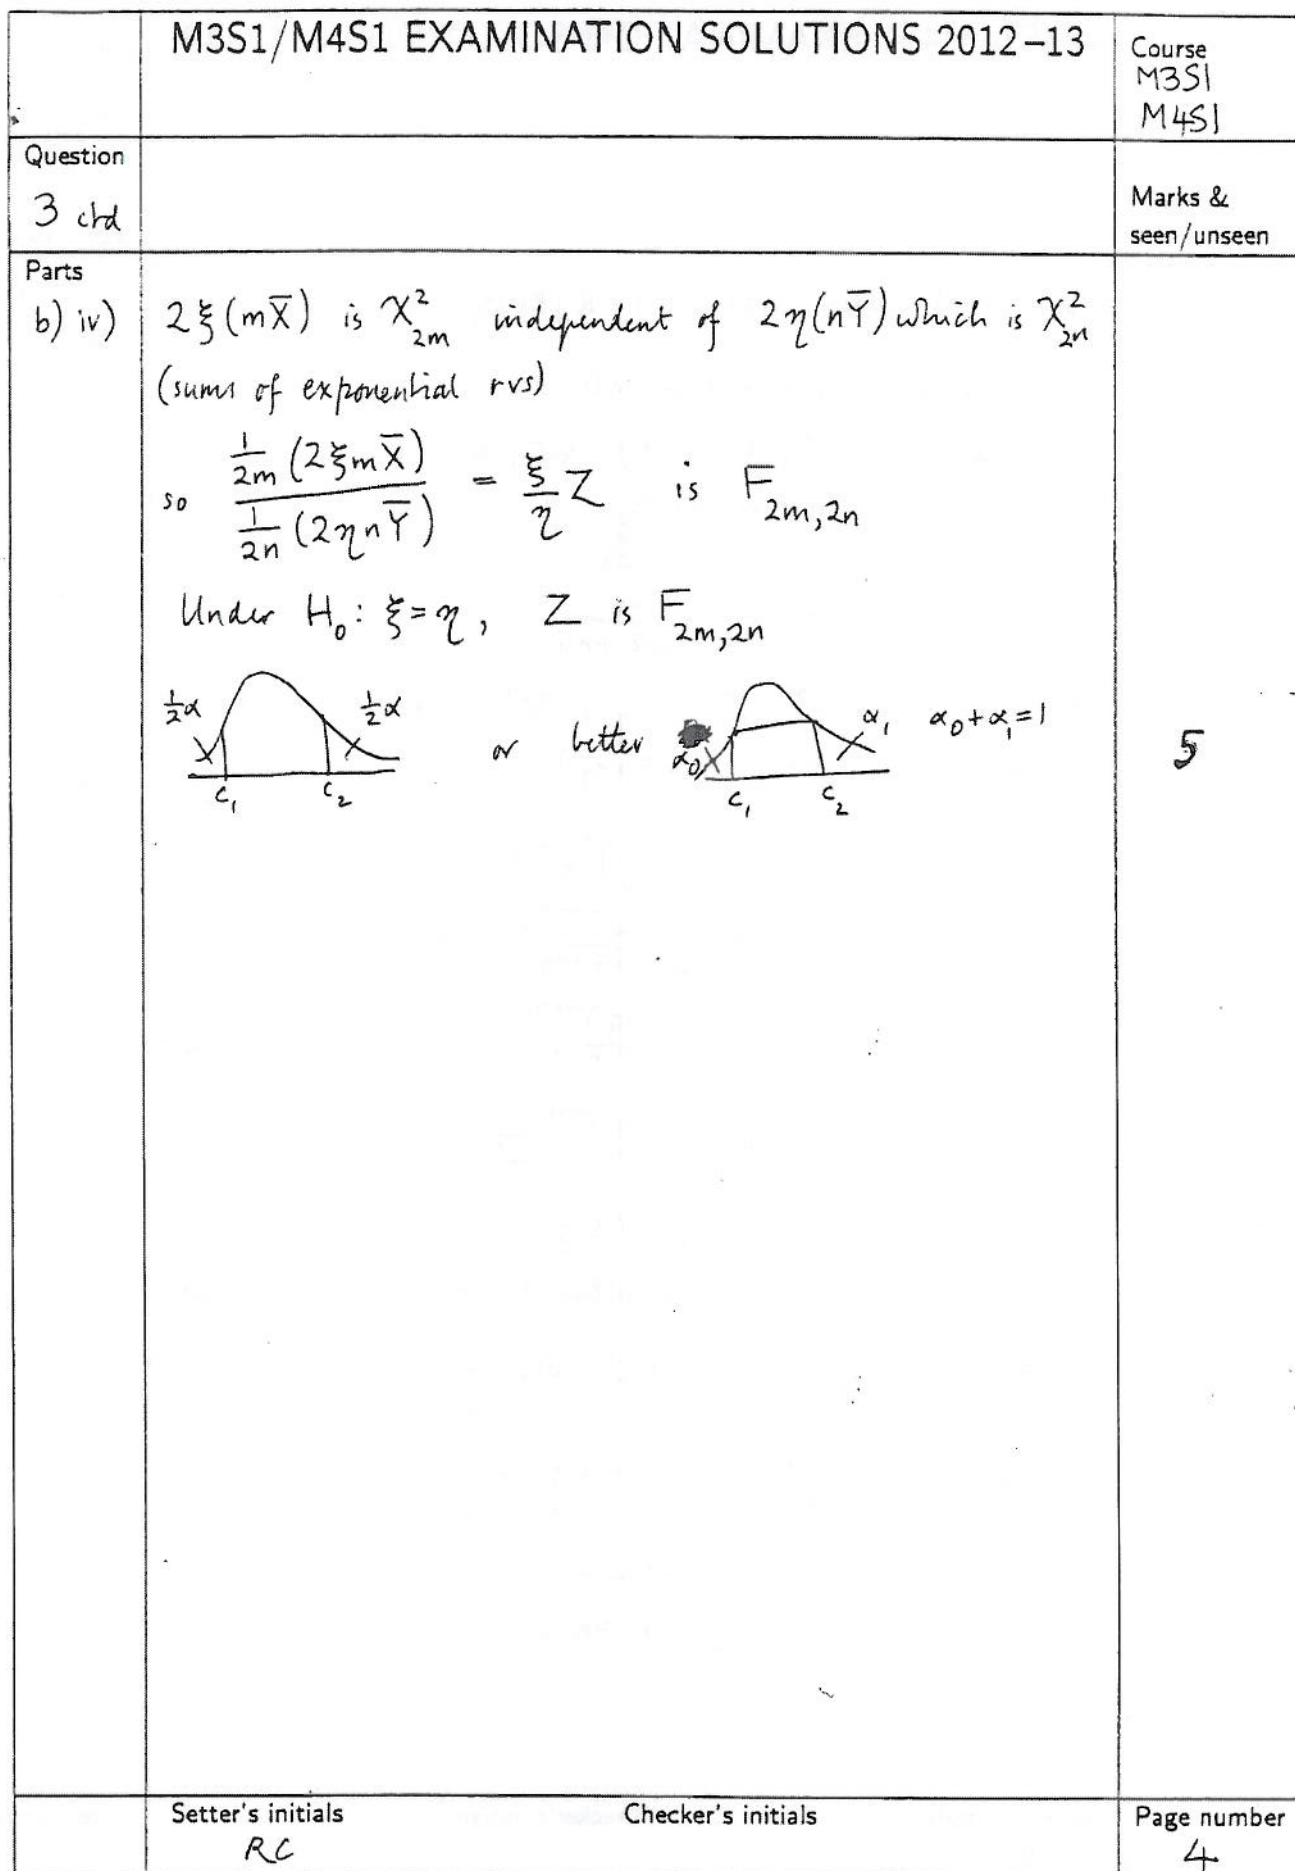 M3S1/M4S1 EXAMINATION SOLUTIONS 2012–13
Course
M3S1
M4S1
Question
3 ctd
Marks &
seen/unseen
Parts
b) iv) 2ξ(mX̅) is χ²_{2m} independent of 2η(nY̅) which is χ²_{2n}
(sums of exponential rvs)
so \frac{\frac{1}{2m}(2ξmX̅)}{\frac{1}{2n}(2ηnY̅)} = \frac{ξ}{η} Z is F_{2m,2n}
Under H₀: ξ=η, Z is F_{2m,2n}
½α ½α or better α₀ α₁ α₀+α₁=1
c₁ c₂ c₁ c₂
5
Setter's initials
RC
Checker's initials
Page number
4